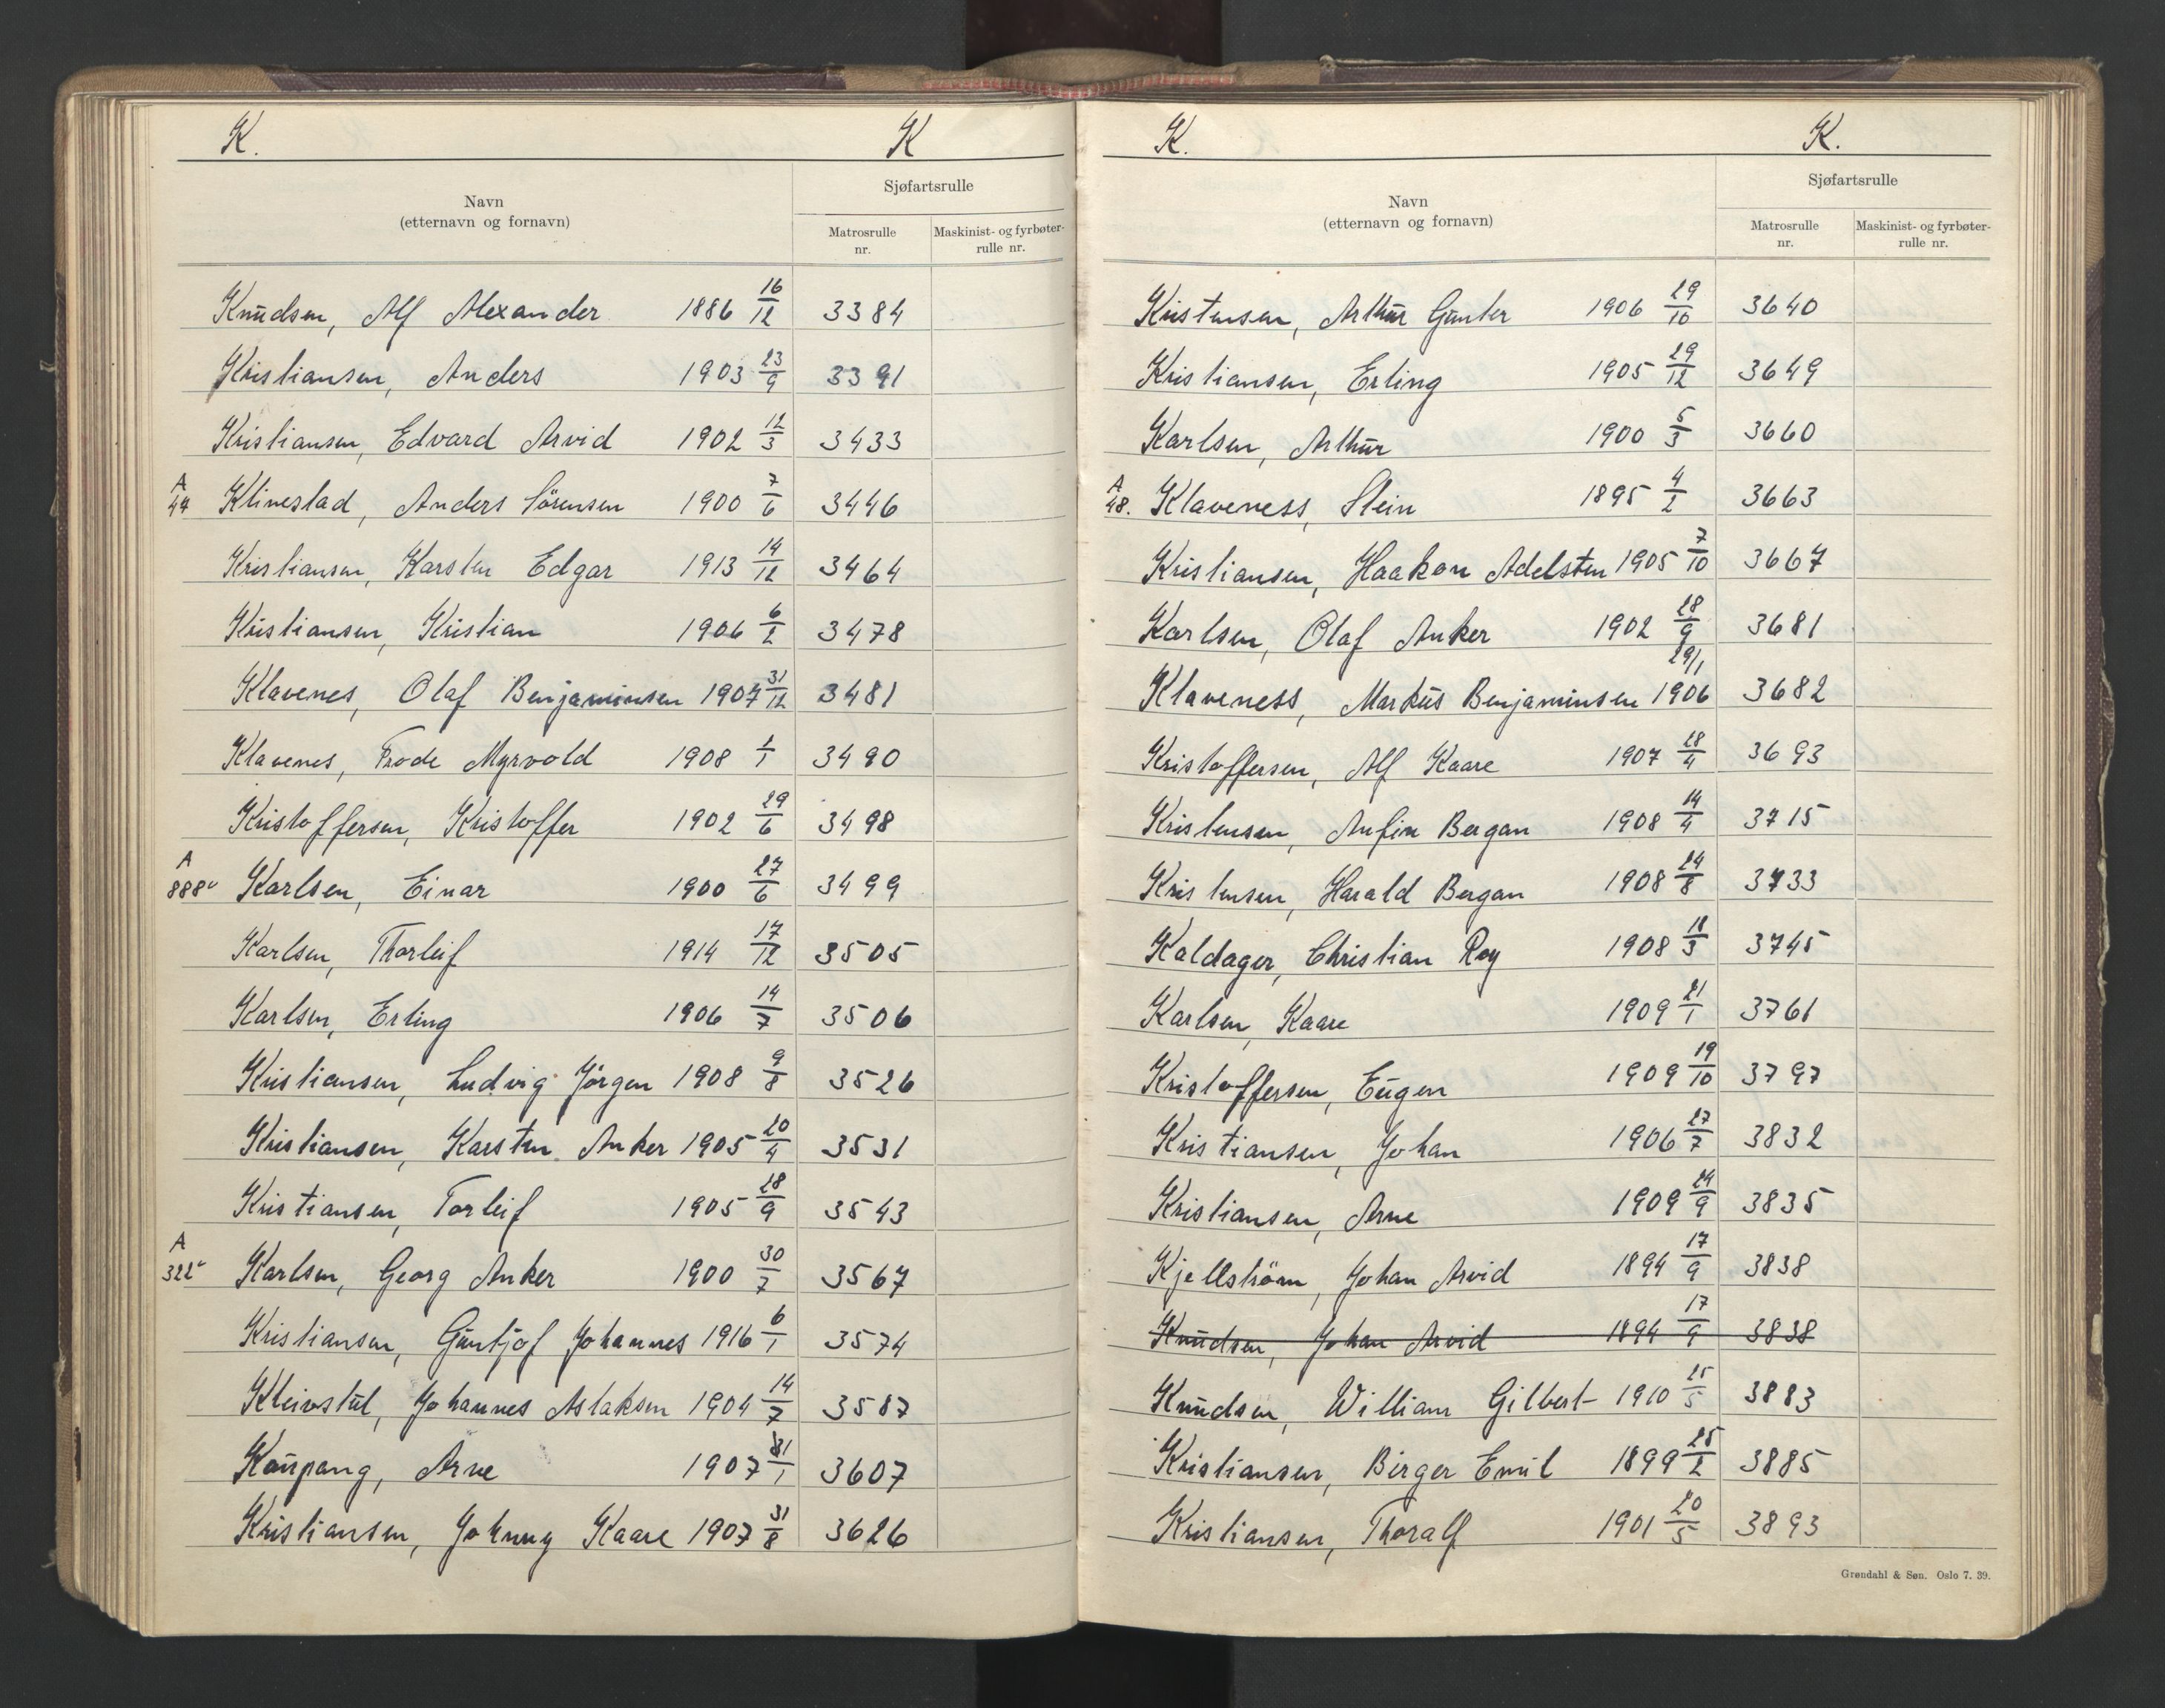 K. K
Navn
(etternavn og fornavn)
Sjøfartsrulle
Matrosrulle
nr.
Maskinist- og fyrbøter-
rulle nr.
Knudsen, Alf Alexander 1886 16/12 3384
Kristiansen, Anders 1903 23/9 3391
Kristiansen, Edvard Arvid 1902 12/3 3433
A 44 Klinestad, Anders Sörensen 1900 7/6 3446
Kristiansen, Karsten Edgar 1913 14/12 3464
Kristiansen, Kristian 1906 6/2 3478
Klavenes, Olaf Benjaminsen 1907 31/12 3481
Klavenes, Frode Myrvold 1908 1/1 3490
Kristoffersen, Kristoffer 1902 29/6 3498
A 888 Karlsen, Einar 1900 27/6 3499
Karlsen, Thorleif 1914 17/12 3505
Karlsen, Erling 1906 14/7 3506
Kristiansen, Ludvig Jörgen 1908 9/8 3526
Kristiansen, Karsten Anker 1905 20/4 3531
Kristiansen, Torleif 1905 28/9 3543
A 322 Karlsen, Georg Anker 1900 30/7 3567
Kristiansen, Guntjof Johannes 1916 6/1 3574
Kleivstul, Johannes Aslaksen 1904 14/7 3587
Kaupang, Arne 1907 31/1 3607
Kristiansen, Johnny Kaare 1907 31/8 3626
K. K.
Navn
(etternavn og fornavn)
Sjøfartsrulle
Matrosrulle
nr.
Maskinist- og fyrbøter-
rulle nr.
Kristensen, Arthur Gunter 1906 29/10 3640
Kristiansen, Erling 1905 29/12 3649
Karlsen, Arthur 1900 5/3 3660
A 48. Klaveness, Stein 1895 4/2 3663
Kristiansen, Haakon Adelsten 1905 7/10 3667
Karlsen, Olaf Anker 1902 28/9 3681
Klaveness, Markus Benjaminsen 1906 29/1 3682
Kristoffersen, Alf Kaare 1907 28/4 3693
Kristensen, Anfin Bergan 1908 14/4 3715
Kristensen, Harald Bergan 1908 24/8 3733
Kaldager, Christian Roy 1908 18/3 3745
Karlsen, Kaare 1909 21/1 3761
Kristoffersen, Eugen 1909 19/10 3797
Kristiansen, Johan 1906 27/7 3832
Kristiansen, Arne 1909 24/9 3835
Kjellström, Johan Arvid 1894 17/9 3838
Knudsen, Johan Arvid 1894 17/9 3838
Knudsen, William Gilbert 1910 25/5 3883
Kristiansen, Birger Emil 1899 25/2 3885
Kristiansen, Thoralf 1901 20/5 3893
Grøndahl & Søn. Oslo 7. 39.